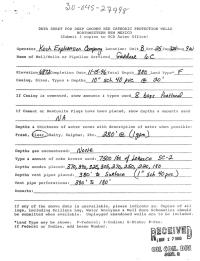 30-045-27998
DATA SHEET FOR DEEP GROUND BED CATHODIC PROTECTION WELLS
NORTHWESTERN NEW MEXICO
(Submit 3 copies to OCD Aztec Office)
Operator Koch Exploration Company Location: Unit
Name of Well/Wells or Pipeline Serviced Gardner 6C
Elevation Completion Date 11-5-96 Total Depth 390 Land Type* F
Casing, Sizes, Types & Depths 10" sch 40 pvc @ 30'
If Casing is cemented, show amounts & types used 8 bags Portland
If Cement or Bentonite Plugs have been placed, show depths & amounts used
N/A
Depths & thickness of water zones with description of water when possible:
Fresh, Clear, Salty, Sulphur, Etc. 280' @ (1gpm)
Depths gas encountered: None
Type & amount of coke breeze used: 7500 lbs of Loresco SC-2
Depths anodes placed:
Depths vent pipes placed: 390' to Surface (1" sch 40 pvc)
Vent pipe perforations: 390' to 180'
Remarks:
If any of the above data is unavailable, please indicate so. Copies of all
logs, including Drillers Log, Water Analyses & Well Bore Schematics should
be submitted when available. Unplugged abandoned wells are to be included.
*Land Type may be shown: F-Federal; I-Indian; S-State; P-Fee.
If Federal or Indian, add Lease Number.
RECEIVED
OIL CON. DIV.